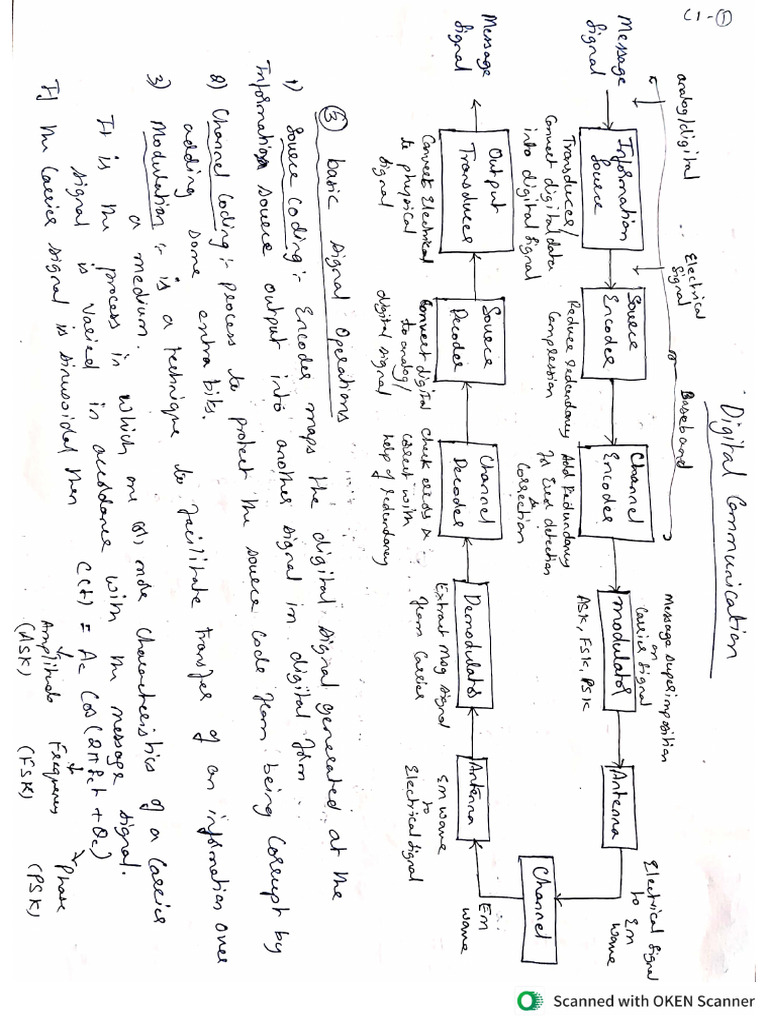 C1-①
Digital Communication
analog/digital
Electrical
Signal
Baseband
Message superimposition
on
Carrier Signal
Electrical Signal
to Em
wave
Message
Signal
Information
Source
Source
Encoder
Channel
Encoder
Modulator
Antenna
Transducer/
Convert digital data
into digital signal
Reduce redundancy
Compression
Add Redundancy
for Error detection
&
Correction
ASK, FSK, PSK
Channel
Message
Signal
Output
Transducer
Source
Decoder
Channel
Decoder
Demodulator
Antenna
Em
wave
Convert Electrical
to physical
signal
Convert digital
to analog/
digital signal
Check errors &
correct with
help of redundancy
Extract Msg signal
from Carrier
Em wave
to
Electrical Signal
③ basic signal operations
1) Source coding :- Encoder maps the digital signal generated at the
Information source output into another signal in digital form.
2) Channel Coding :- process to protect the source code from being corrupt by
adding some extra bits.
3) Modulation :- is a technique to facilitate transfer of an information over
a medium.
It is the process in which one (or) more characteristics of a carrier
signal is varied in accordance with the message signal.
If the Carrier signal is sinusoidal then C(t) = Ac Cos(2πfct + θc)
Amplitude Frequency Phase
(ASK) (FSK) (PSK)
Scanned with OKEN Scanner